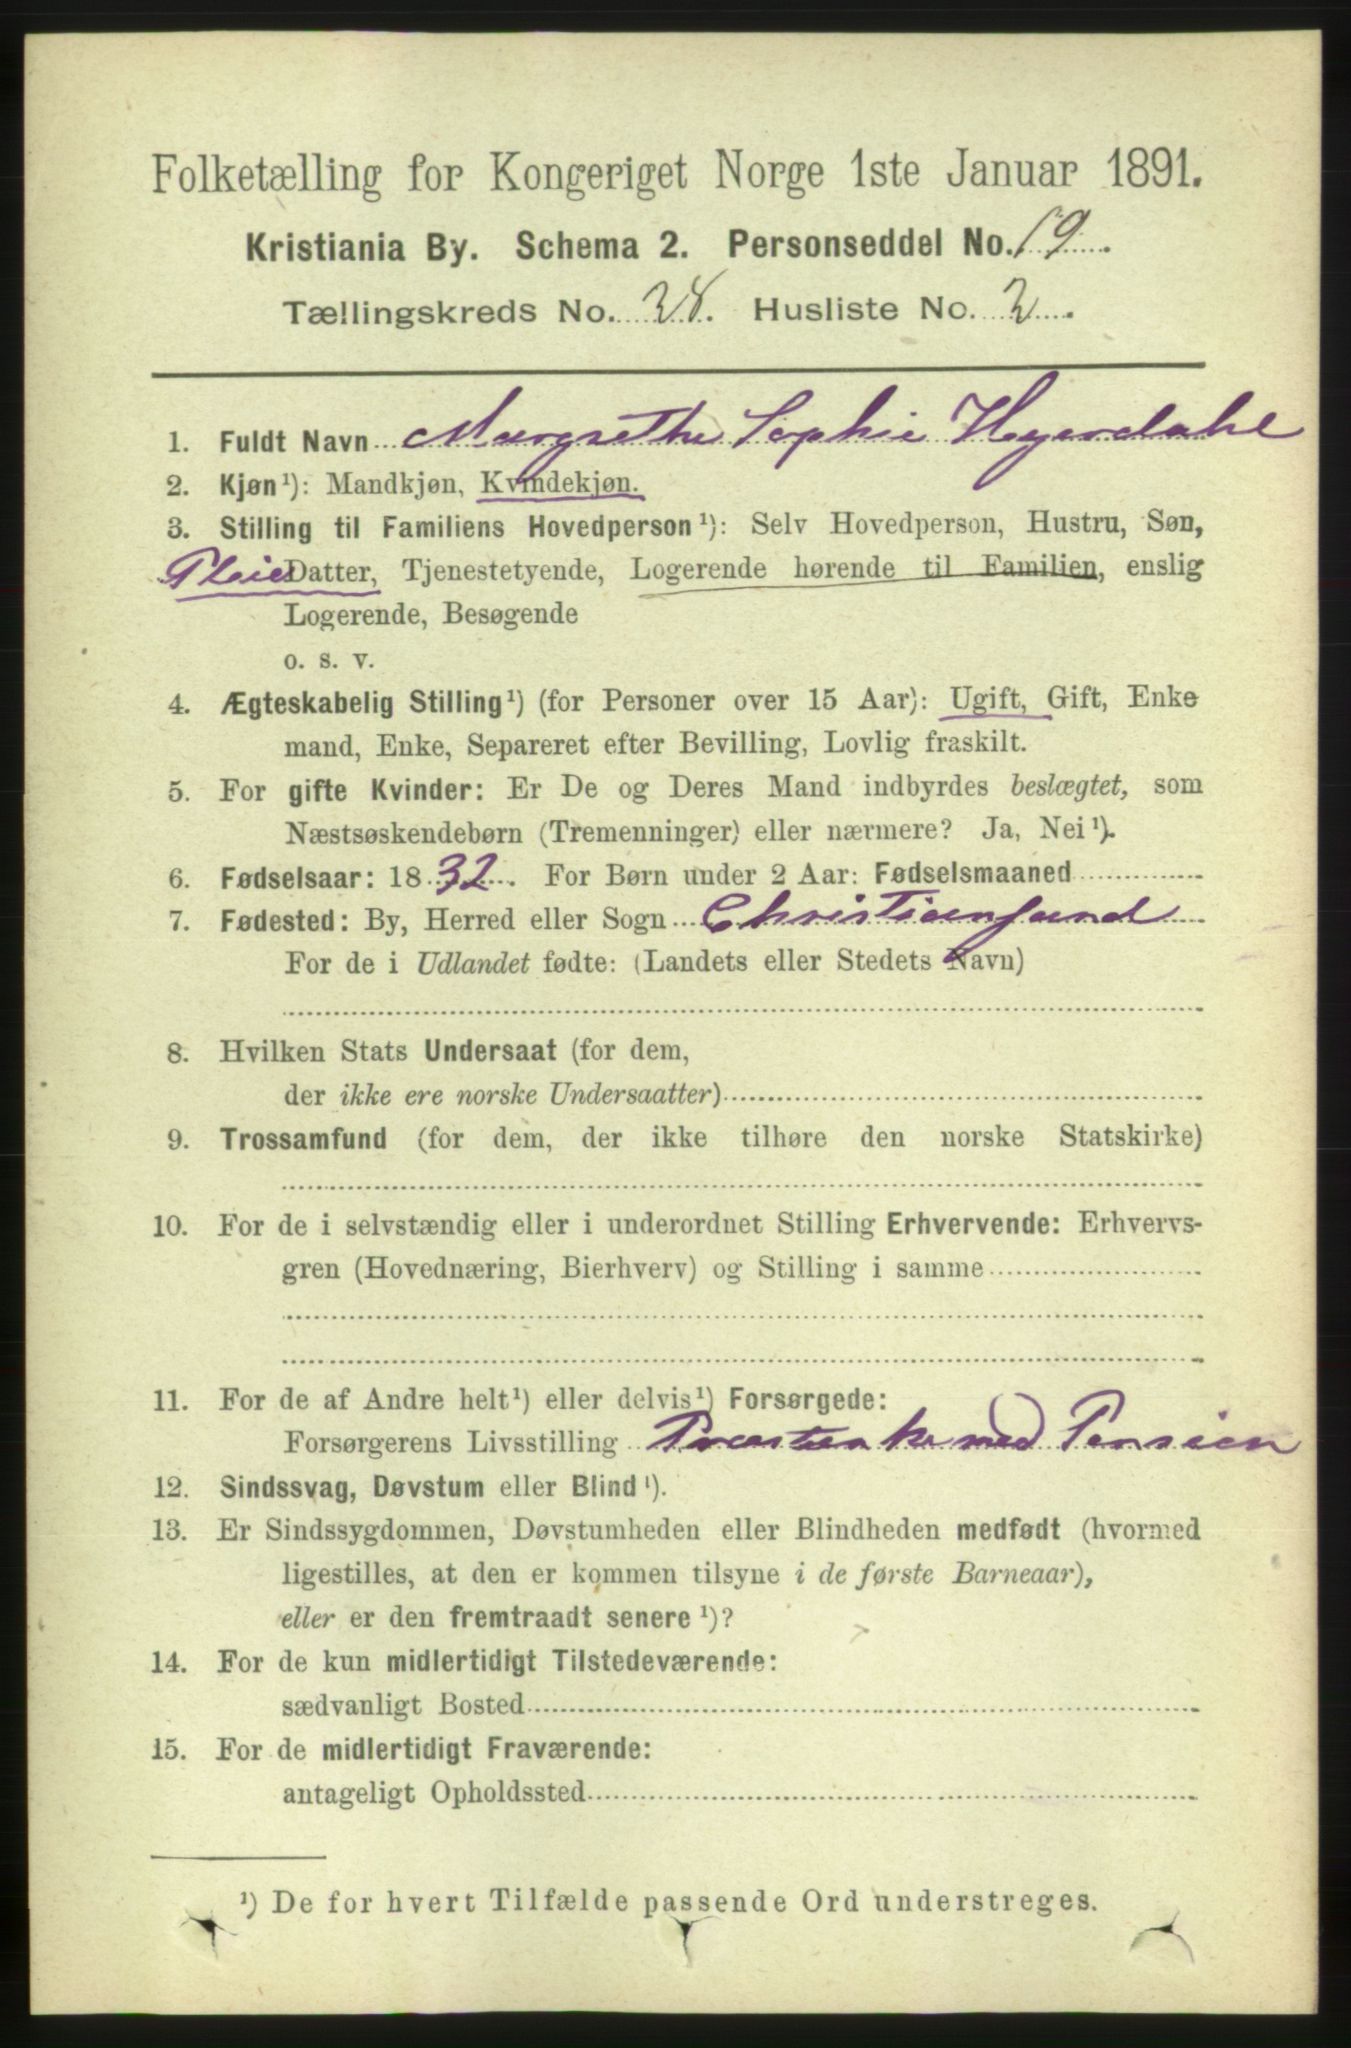 Folketælling for Kongeriget Norge 1ste Januar 1891.
Kristiania By. Schema 2. Personseddel No. 19
Tællingskreds No. 28. Husliste No. 2
1. Fuldt Navn Margrethe Sophie Hyerdahl
2. Kjøn¹): Mandkjøn, Kvindekjøn.
3. Stilling til Familiens Hovedperson¹): Selv Hovedperson, Hustru, Søn,
Pleie Datter, Tjenestetyende, Logerende hørende til Familien, enslig
Logerende, Besøgende
o. s. v.
4. Ægteskabelig Stilling¹) (for Personer over 15 Aar): Ugift, Gift, Enke
mand, Enke, Separeret efter Bevilling, Lovlig fraskilt.
5. For gifte Kvinder: Er De og Deres Mand indbyrdes beslægtet, som
Næstsøskendebørn (Tremenninger) eller nærmere? Ja, Nei¹).
6. Fødselsaar: 1832. For Børn under 2 Aar: Fødselsmaaned
7. Fødested: By, Herred eller Sogn Christiansund
For de i Udlandet fødte: (Landets eller Stedets Navn)
8. Hvilken Stats Undersaat (for dem,
der ikke ere norske Undersaatter)
9. Trossamfund (for dem, der ikke tilhøre den norske Statskirke)
10. For de i selvstændig eller i underordnet Stilling Erhvervende: Erhvervs-
gren (Hovednæring, Bierhverv) og Stilling i samme
11. For de af Andre helt¹) eller delvis¹) Forsørgede:
Forsørgerens Livsstilling Præsteenke med Pension
12. Sindssvag, Døvstum eller Blind¹).
13. Er Sindssygdommen, Døvstumheden eller Blindheden medfødt (hvormed
ligestilles, at den er kommen tilsyne i de første Barneaar),
eller er den fremtraadt senere¹)?
14. For de kun midlertidigt Tilstedeværende:
sædvanligt Bosted
15. For de midlertidigt Fraværende:
antageligt Opholdssted
¹) De for hvert Tilfælde passende Ord understreges.